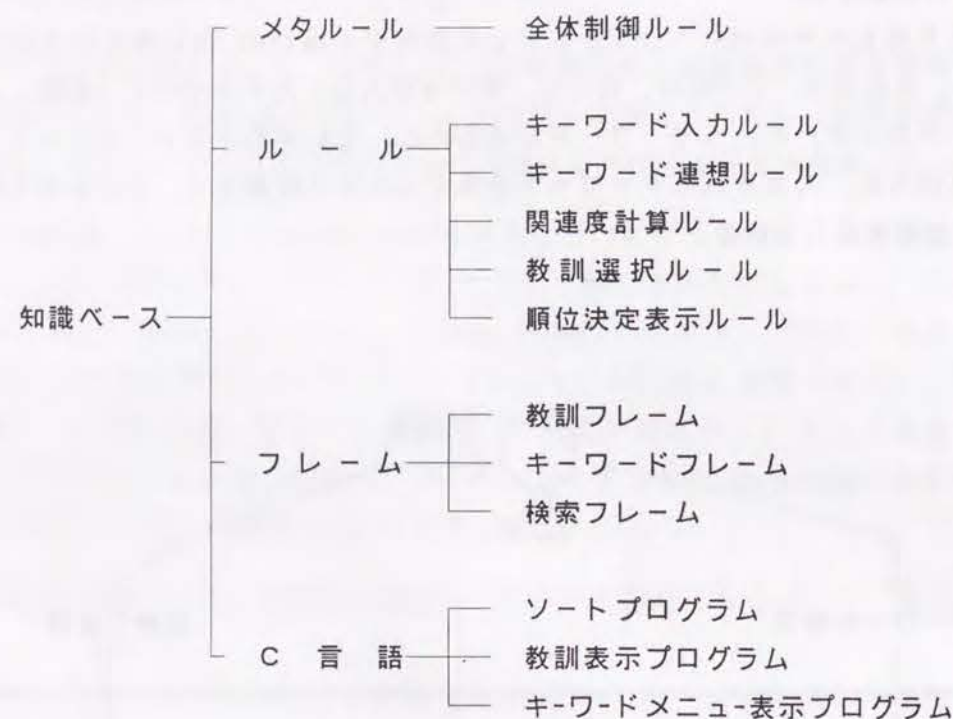 メタルール 全体制御ルール
ルール キーワード入力ルール
キーワード連想ルール
関連度計算ルール
教訓選択ルール
知識ベース 順位決定表示ルール
教訓フレーム
フレーム キーワードフレーム
検索フレーム
ソートプログラム
C言語 教訓表示プログラム
キーワードメニュー表示プログラム